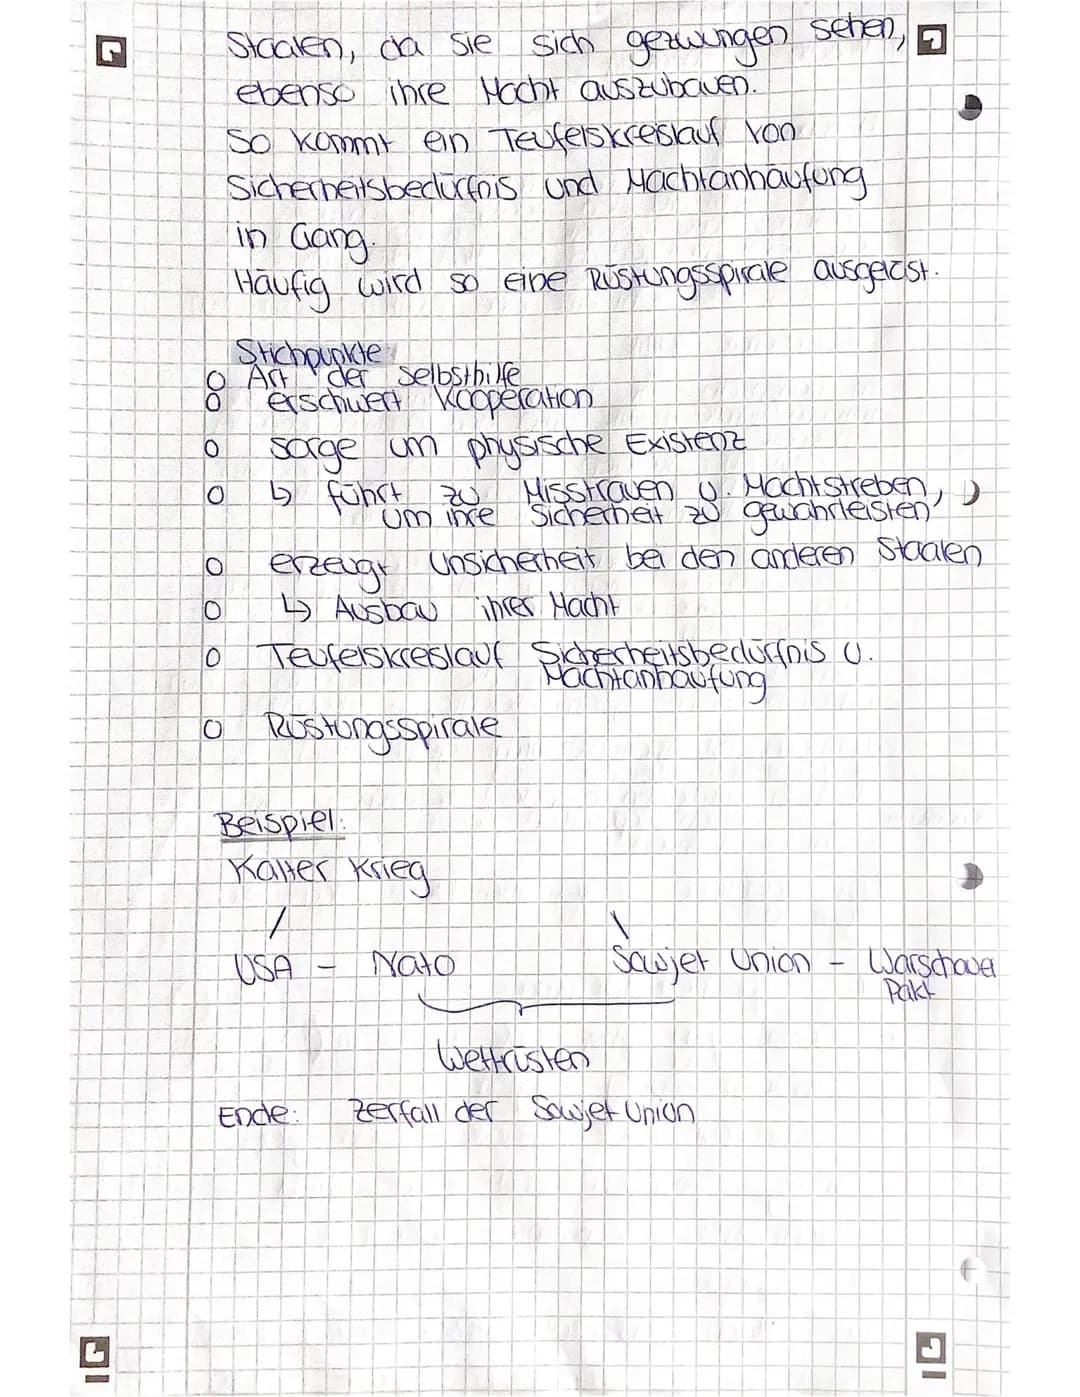 Staaten, da sie sich gezwungen sehen,
ebenso ihre Macht auszubauen.
So kommt ein Teufelskreislauf von
Sicherheitsbedürfnis und Machtanhäufung
in Gang.
Häufig wird so eine Rüstungsspirale ausgelöst.
Stichpunkte:
o Art der Selbsthilfe
o erschwert Kooperation
o sorge um physische Existenz
o ↳ führt zu Misstrauen u. Machtstreben,
um ihre Sicherheit zu gewährleisten
o erzeugt Unsicherheit bei den anderen Staaten
o ↳ Ausbau ihrer Macht
o Teufelskreislauf Sicherheitsbedürfnis u.
Machtanhäufung
o Rüstungsspirale
Beispiel:
Kalter Krieg
USA - Nato Sowjet Union - Warschauer
Pakt
Wettrüsten
Ende: Zerfall der Sowjet Union